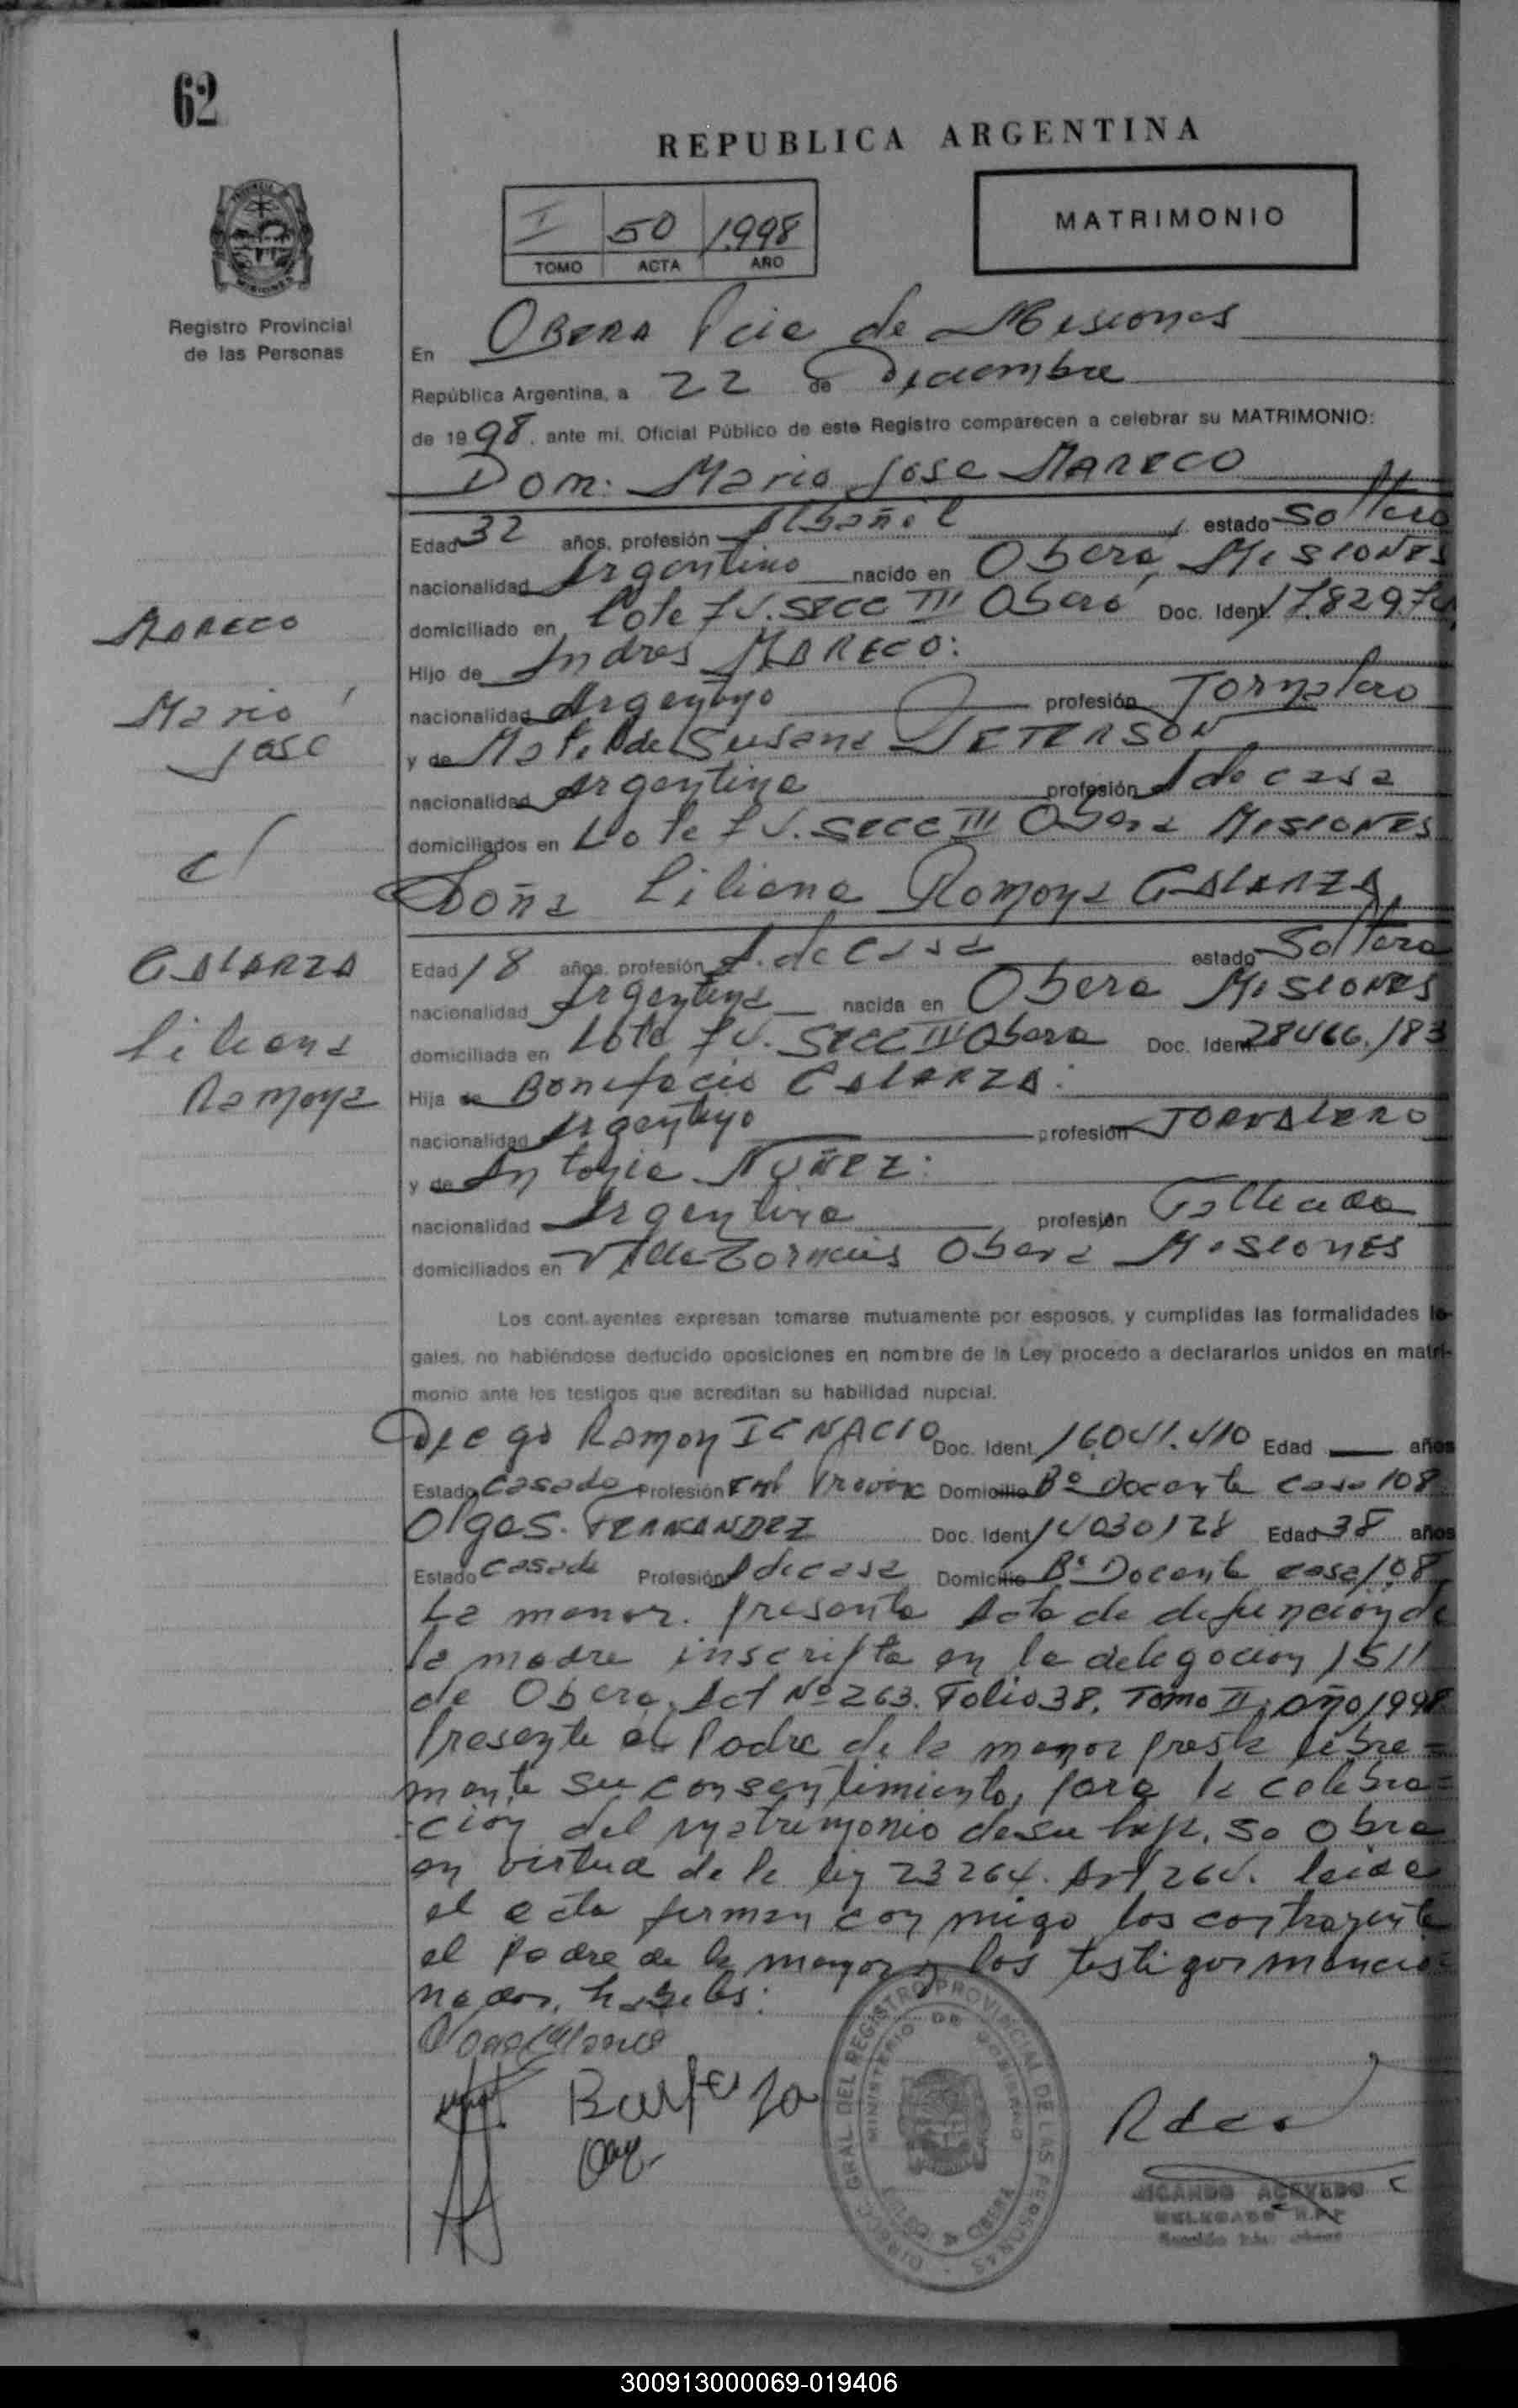 62
REPUBLICA ARGENTINA
I 50 1998
TOMO ACTA AÑO
MATRIMONIO
Registro Provincial
de las Personas
En OBERA Pcia de Misiones
República Argentina, a 22 de Diciembre
de 1998, ante mi, Oficial Público de este Registro comparecen a celebrar su MATRIMONIO:
Don: Mario Jose MARECO
Edad 32 años, profesión Albañil estado Soltero
nacionalidad Argentino nacido en Oberá, MISIONES
domiciliado en Lote SECC III Oberá Doc. Ident.
Hijo de Andres MARECO:
nacionalidad Argentino profesión Jornalero
y de Matilde Susana PETERSON
nacionalidad Argentina profesión A de casa
domiciliados en Lote SECC III Obera MISIONES
Doña Liliana Romoya GALARZA
Edad 18 años, profesión A. de Casa estado Soltera
nacionalidad Argentina nacida en Obera MISIONES
domiciliada en Lote SECC Obera Doc. Ident. 28466.183
Hija de Bonifacio GALARZA:
nacionalidad Argentino profesión JORNALERO
y de Antonia NUÑEZ:
nacionalidad Argentina profesión Fallecida
domiciliados en Villa Obera MISIONES
MARECO
Mario
Jose
c/
GALARZA
Liliana
Romoya
Los contrayentes expresan tomarse mutuamente por esposos, y cumplidas las formalidades le-
gales, no habiéndose deducido oposiciones en nombre de la Ley procedo a declararlos unidos en matri-
monio ante los testigos que acreditan su habilidad nupcial.
Diego Ramon IGNACIO Doc. Ident. 16041.410 Edad — años
Estado Casado Profesión Emp Provinc Domicilio Bº Docente casa 108
Olga S. FERNANDEZ Doc. Ident 14030128 Edad 38 años
Estado Casada Profesión A de casa Domicilio Bº Docente casa 108
La menor. presenta Acta de defuncion de
la madre inscripta en la delegacion 1511
de Obera, Act Nº 263. Folio 38. Tomo II, año 1998
Presente el Padre de la menor presta libre=
mente su consentimiento, para la celebra=
cion del matrimonio de su hija. Se obra
en virtud de la ley 23264. Art 264. leida
el acta firman con migo los contrayente
el padre de la menor y los testigos mencio=
nados, habiles:
DIRECC. GRAL. DEL REGISTRO PROVINCIAL DE LAS PERSONAS
MINISTERIO DE GOBIERNO
OBERA
RICARDO ACEVEDO
DELEGADO R.P.P
300913000069-019406